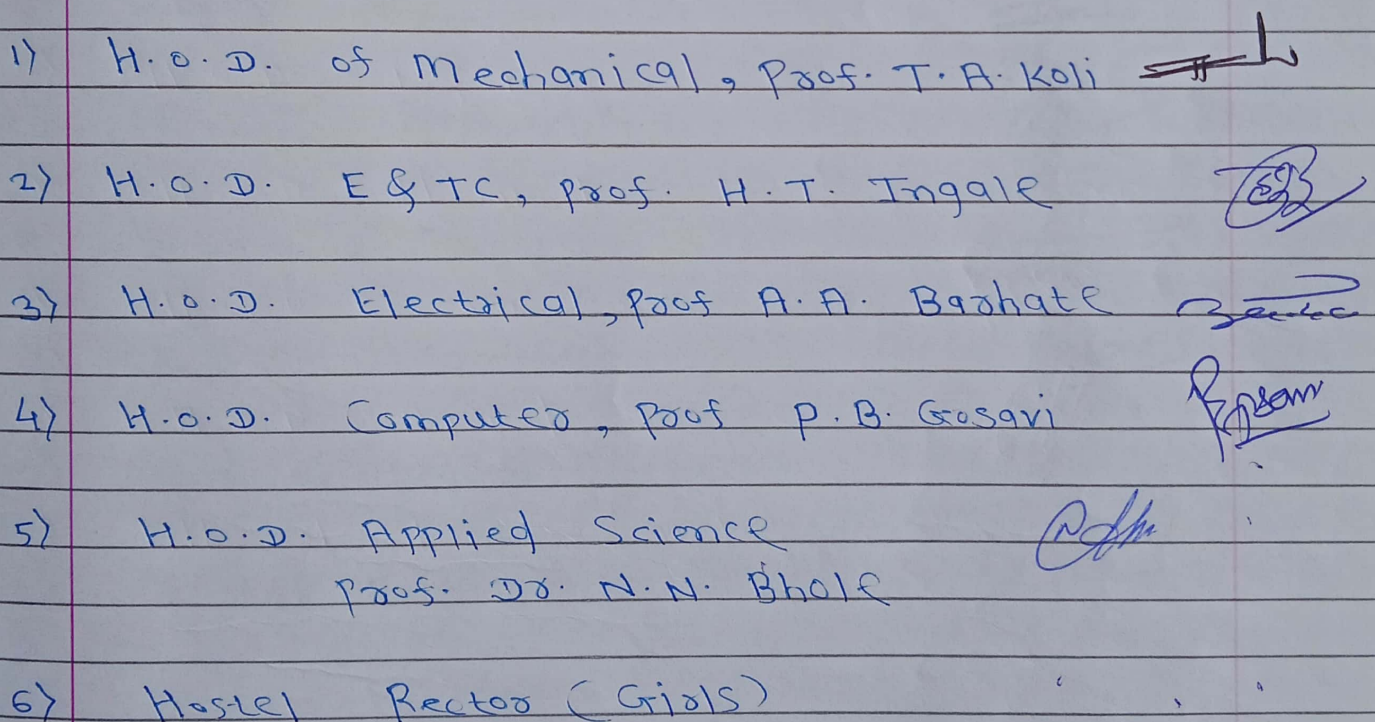 1) H.O.D. of Mechanical, Prof. T.A. Koli
2) H.O.D. E & TC, Prof. H.T. Ingale
3) H.O.D. Electrical, Prof A.A. Barhate
4) H.O.D. Computer, Prof P.B. Gosavi
5) H.O.D. Applied Science
Prof. Dr. N.N. Bhole
6) Hostel Rector (Girls)